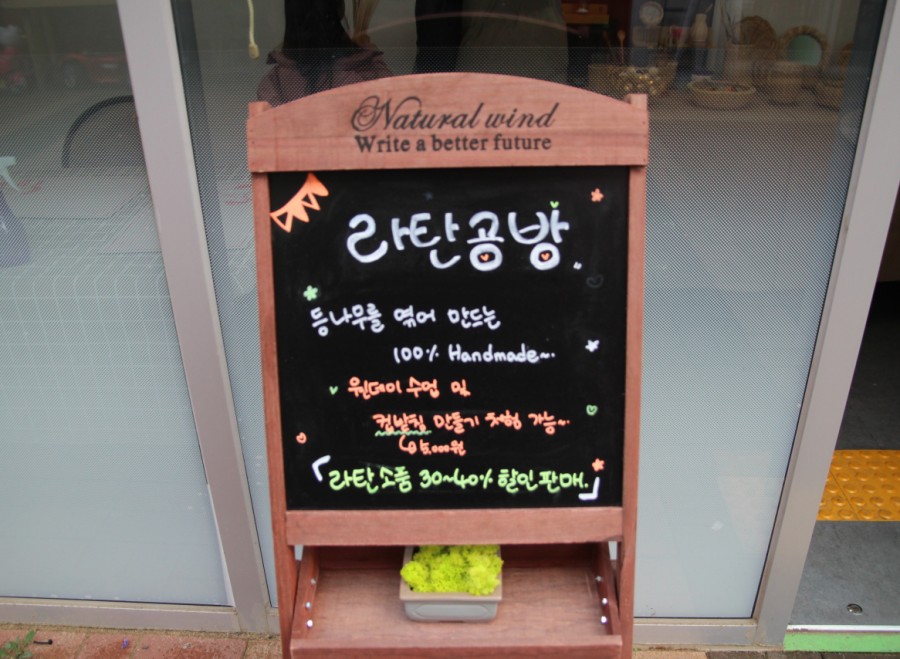 Natural wind
Write a better future
라탄공방
등나무를 엮어 만드는
100% Handmade~
원데이 수업 및
컵받침 만들기 체험 가능~
5,000원
「라탄소품 30~40% 할인판매.」